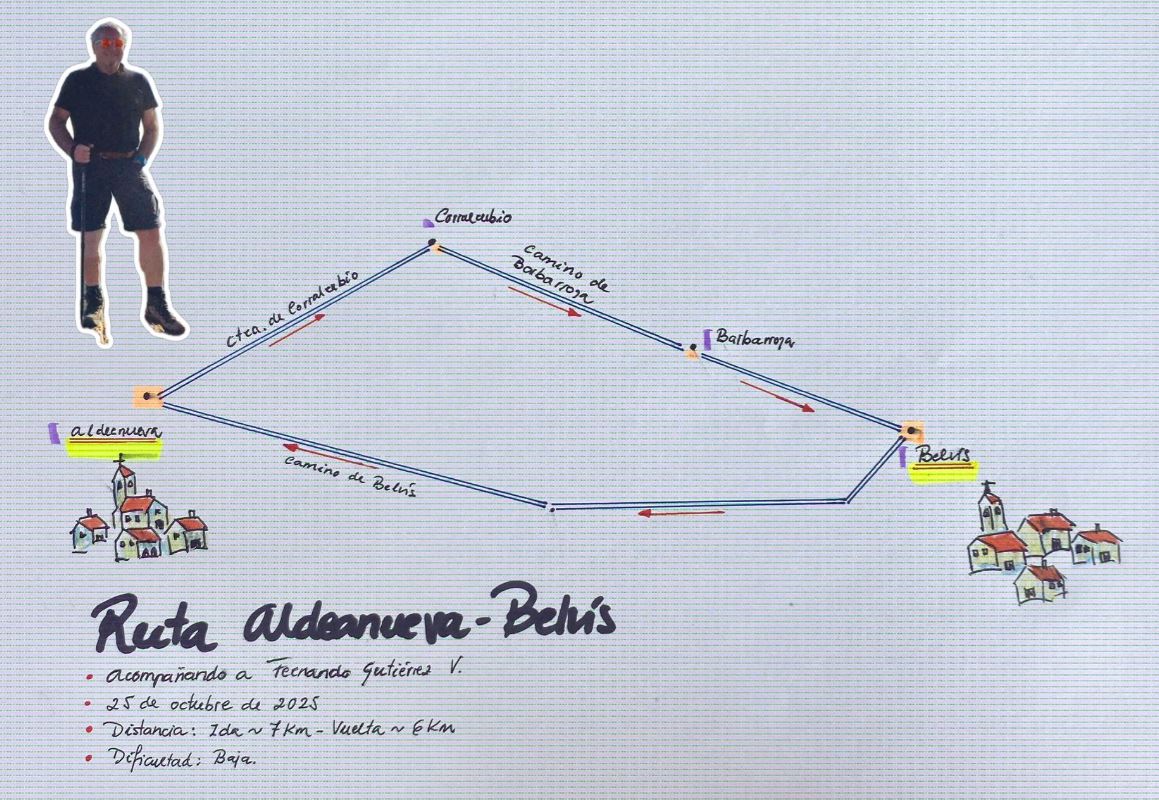 Corralrubio
Camino de
Barbarroja
Ctra. de Corralrubio
Barbarroja
Aldeanueva
Belvís
Camino de Belvís
Ruta Aldeanueva-Belvís
• Acompañando a Fernando Gutiérrez V.
• 25 de octubre de 2025
• Distancia: Ida ~ 7 Km - Vuelta ~ 6 Km
• Dificultad: Baja.